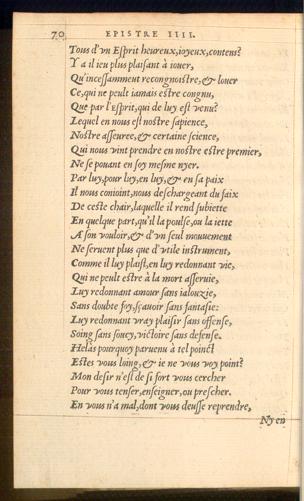 70 EPISTRE IIII.
Tous d'vn Esprit heureux, ioyeux, contens?
Y a il ieu plus plaisant à iouer,
Qu'incessamment recongnoistre, & louer
Ce, qui ne peult iamais estre congnu,
Que par l'Esprit, qui de luy est venu?
Lequel en nous est nostre sapience,
Nostre asseuree, & certaine science,
Qui nous vint prendre en nostre estre premier,
Ne se pouant en soy mesme nyer.
Par luy, pour luy, en luy, & en sa paix
Il nous conioint, nous deschargeant du faix
De ceste chair, laquelle il rend subiette
En quelque part, qu'il la poulse, ou la iette
A son vouloir, & d'vn seul mouuement
Ne seruent plus que d'vtile instrument,
Comme il luy plaist, en luy redonnant vie,
Qui ne peult estre à la mort asseruie,
Luy redonnant amour sans ialouzie,
Sans doubte foy, sçauoir sans fantasie:
Luy redonnant vray plaisir sans offense,
Soing sans soucy, victoire sans defense.
Helàs pourquoy paruenu à tel poinct
Estes vous loing, & ie ne vous voy point?
Mon desir n'est de si fort vous cercher
Pour vous tenser, enseigner, ou prescher.
En vous n'a mal, dont vous deusse reprendre,
Ny en